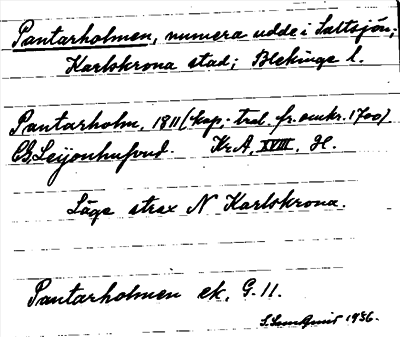 Pantarholmen, numera udde i Saltsjön;
Karlskrona stad; Blekinge l.
Pantarholm, 1811 (kop. trol. fr. omkr. 1700)
CG Leijonhufvud. Kr.A. XVIII. H.
Läge strax N Karlskrona.
Pantarholmen ek. G. 11.
1936.